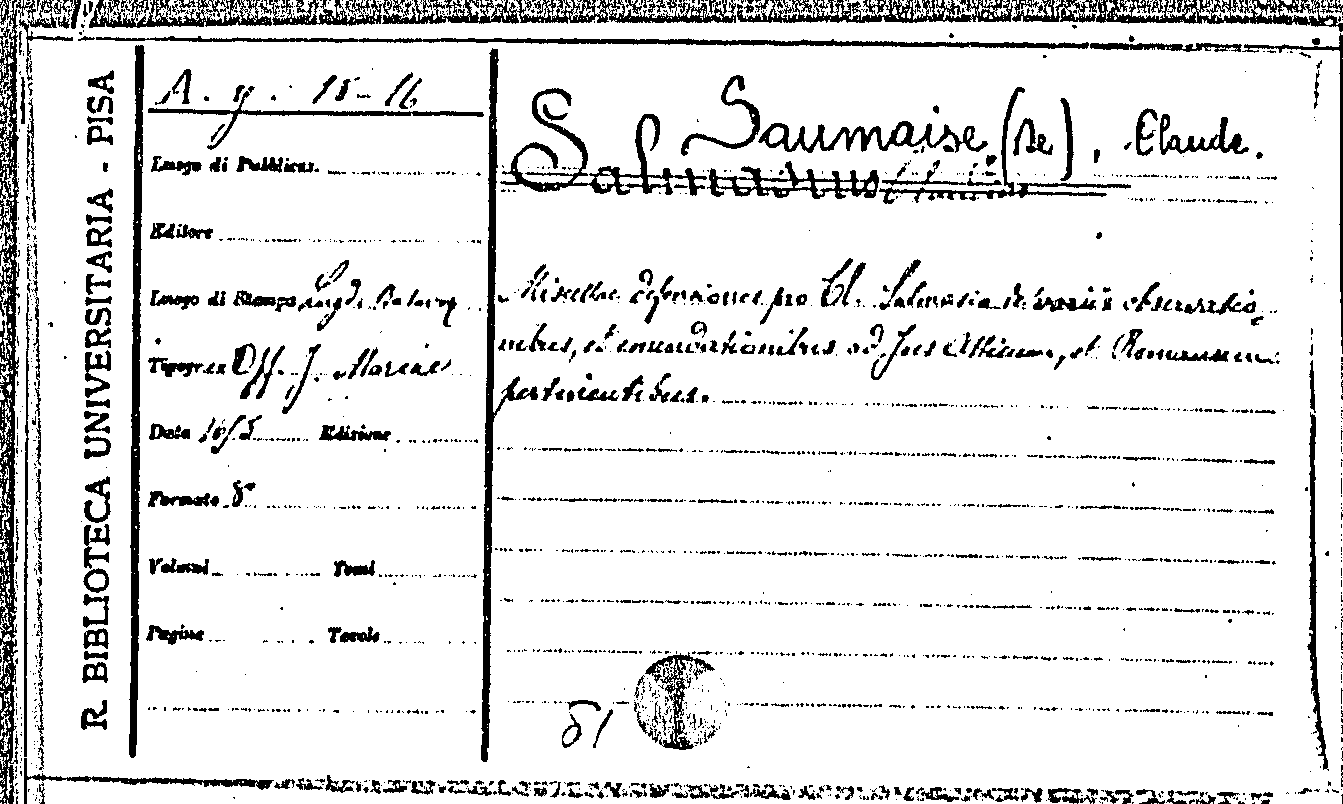 R. BIBLIOTECA UNIVERSITARIA - PISA
A. y. 15-16
Luogo di Pubblicaz.
Editore
Luogo di Stampa Lugd. Batavor
Tipogr. ex Off. J. Mariae
Data 1645
Edizione
Formato 8°
Volumi
Tomi
Pagine
Tavole
Saumaise (de), Claude.
Salmasius
Miscellae defensiones pro Cl. Salmasio de variis observatio-
nibus, et emundationibus ad Jus Atticum, et Romanum
pertinentibus.
81